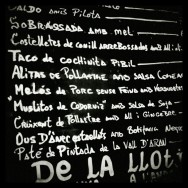 CALDO amb Pilota
SOBRASSADA amb mel
Costelletes de conill arrebossades amb all i
Taco de cochinita Pibil
Alitas de Pollastre amb salsa
"Melós de Porc sense feina amb
"Musllitos de Codorniz" amb salsa de Soja
Cruixent de Pollastre amb All i Gingebre
Ous D'Ànec estrellats amb Botifarra
Paté de Pintada de la Vall D'Aran
DE LA LLOT